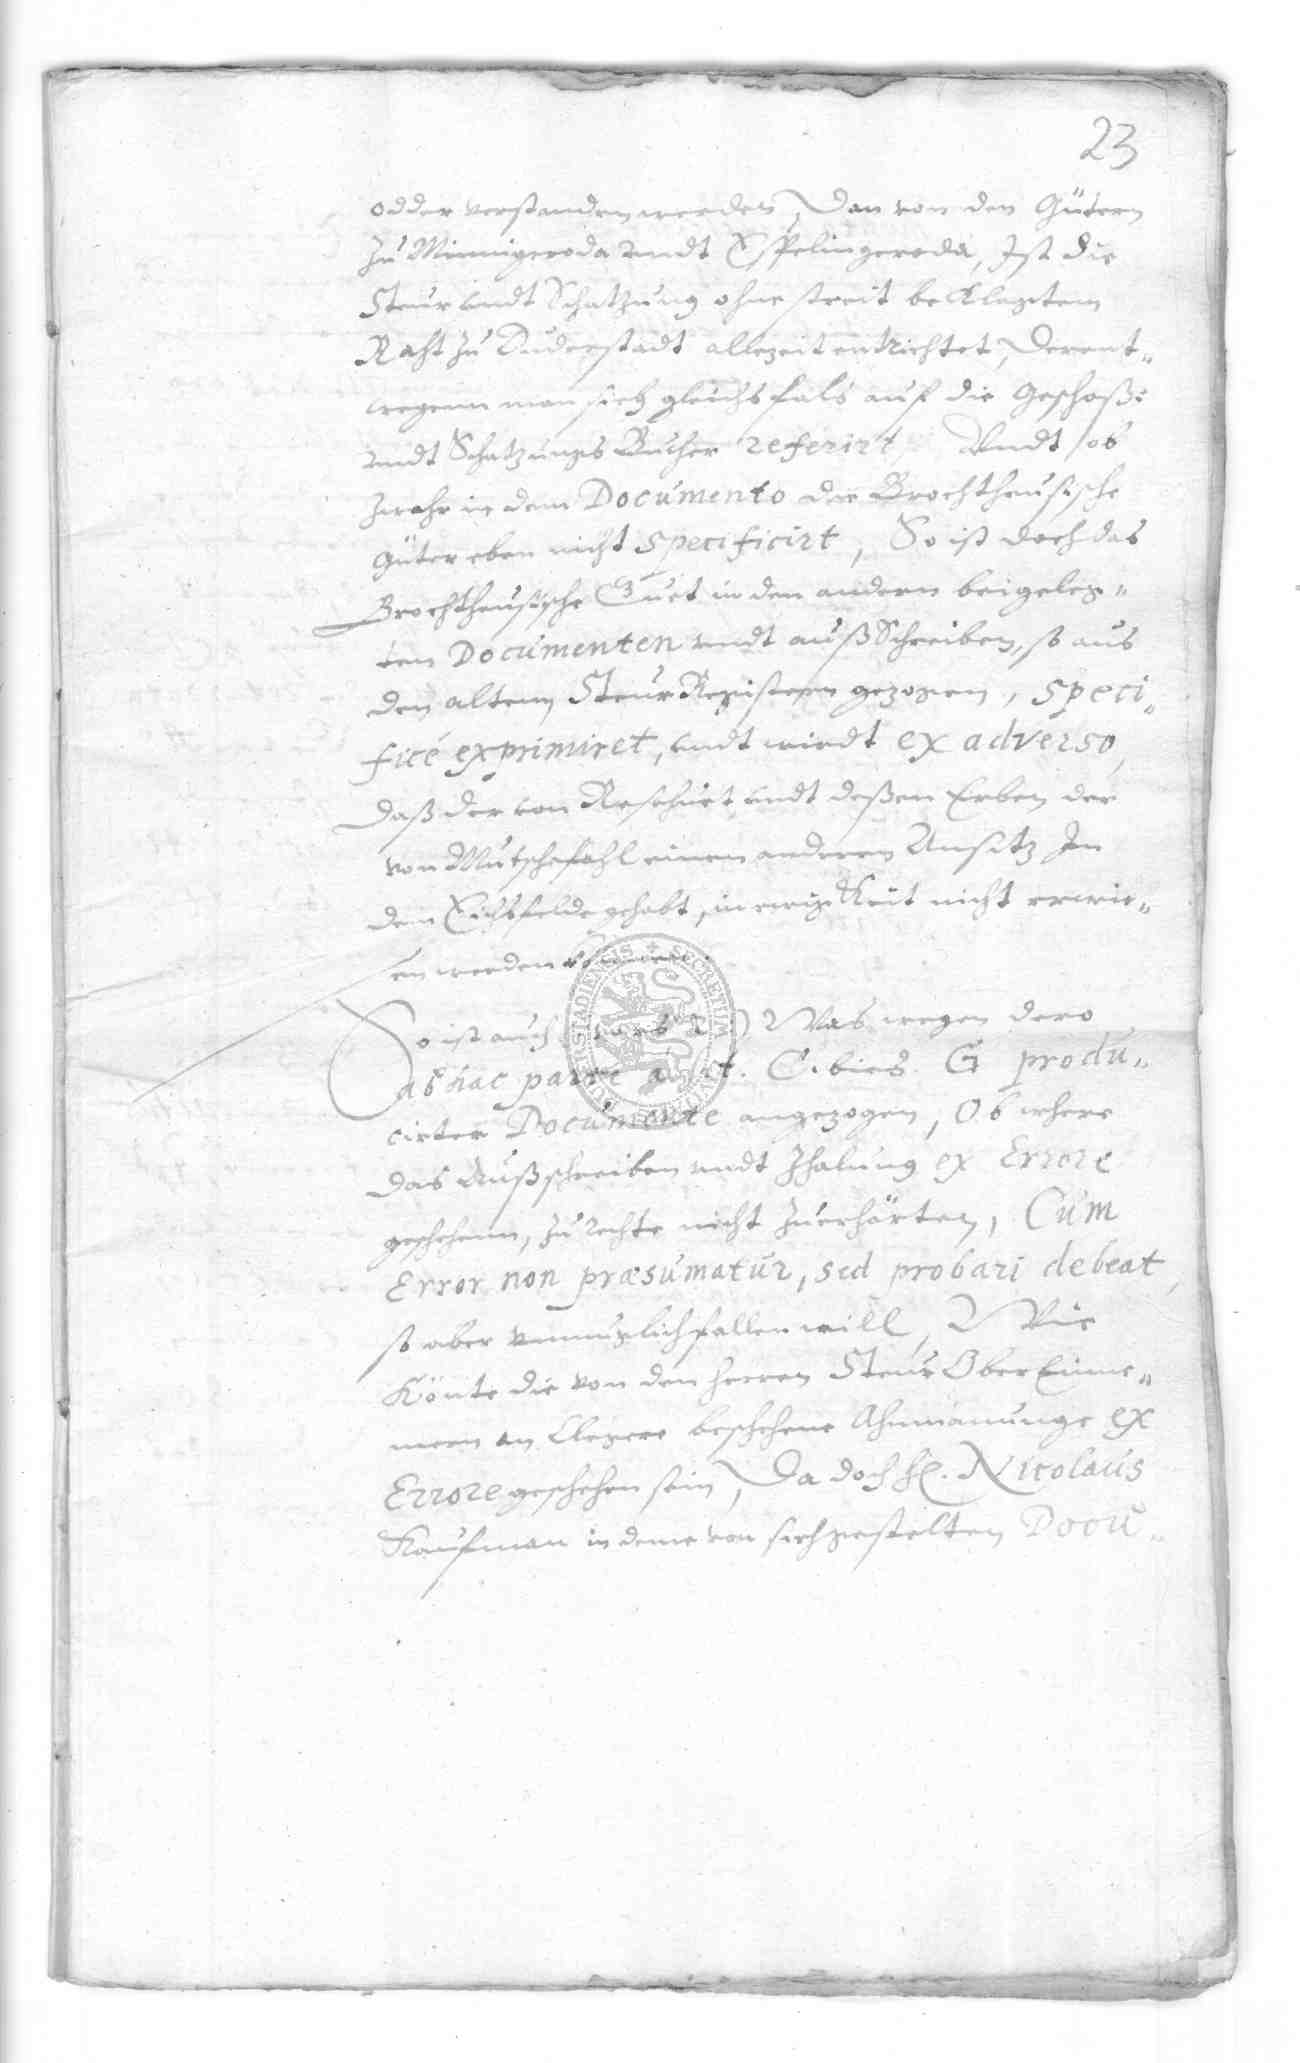 23
odder verstanden werden, Dan von den Gütern
zu Minnigeroda undt Esplingeroda, Ist die
Steur undt Schatzung ohne streit beklagtem
Raht zu Duderstadt allezeit entrichtet, Derent-,,
wegenn man sich gleichsfals auf die Geschoß:
undt Schatzungs Bucher referirt. Undt ob
zwahr in dem Documento die Brochtheusische
Güter eben nicht specificirt, So ist doch das
Brochtheusische Guet in den andern beigeleg,,
ten Documenten undt außschreiben, so aus
den altenn Steur Registern gezogen, speci,,
ficé exprimiret, undt wirdt ex adverso,
Daß der von undt deßen Erben der
von einen anderen Ansitz In
dem Eichsfelde gehabt, in ewigkeit nicht erwie,,
en werden können.
So ist auch Was wegen dero
ab hac parte a G produ,,
cirter Documente angezogen, Ob were
das Außschreiben undt Zhalung ex Errore
geschehenn, zu rechte nicht zuerhärten, Cum
Error non præsumatur, sed probari debeat,
so aber unmuglich fallen will, Wie
Könte die von den herren Steur Ober Einne,,
mern an Clegere beschehene Ahnmanunge ex
Errore geschehen sein, Da doch H. Nicolaus
Kaufman in deme von sich gestelten Docu,,
SECRETUM